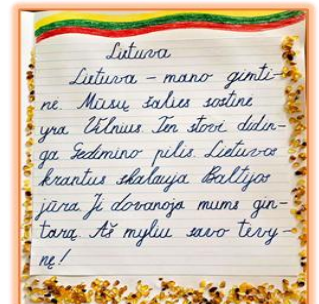 Lietuva
Lietuva – mano gimti-
nė. Mūsų šalies sostinė
yra Vilnius. Ten stovi didin-
ga Gedimino pilis. Lietuvos
krantus skalauja Baltijos
jūra. Ji dovanoja mums gin-
tarą. Aš myliu savo tėvy-
nę!